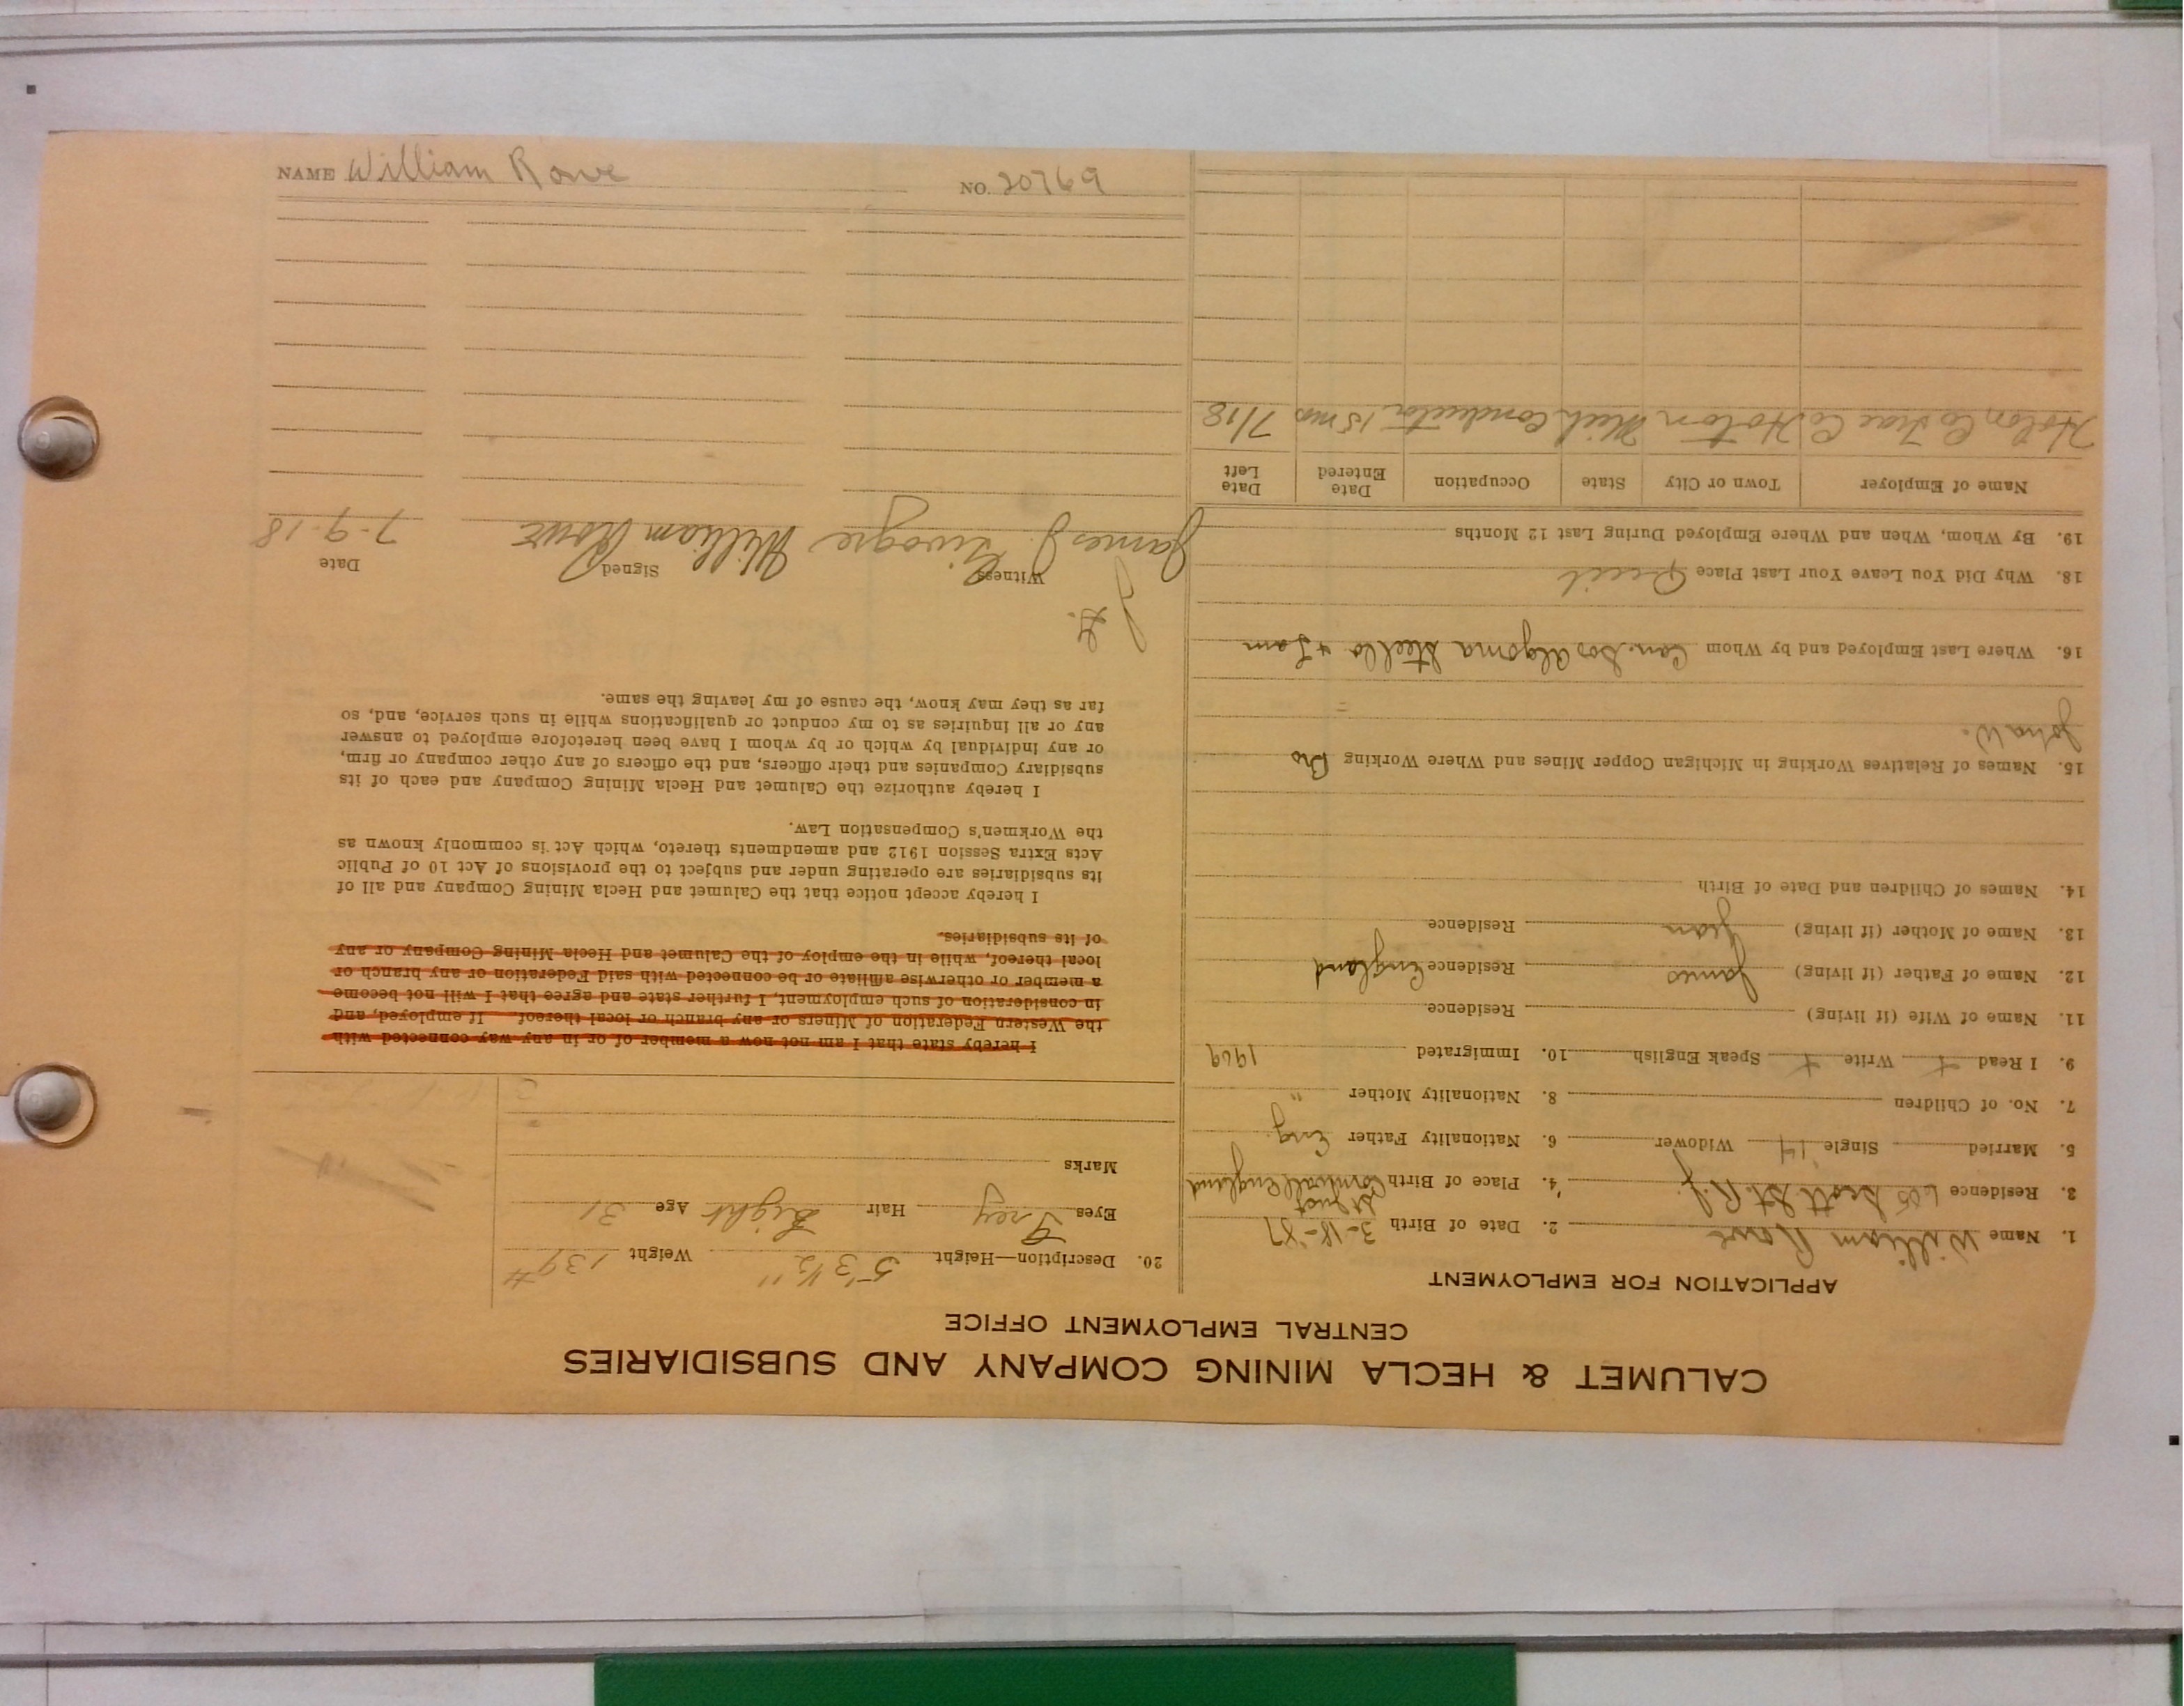 CALUMET & HECLA MINING COMPANY AND SUBSIDIARIES
CENTRAL EMPLOYMENT OFFICE
APPLICATION FOR EMPLOYMENT
1. Name William Rowe 2. Date of Birth 3-18-'87
3. Residence 605 Scott St. R.J. 4. Place of Birth St Just Cornwall England
5. Married Single Widower 6. Nationality Father Eng.
7. No. of Children 8. Nationality Mother "
9. I Read + Write + Speak English 10. Immigrated 1909
11. Name of Wife (if living) Residence
12. Name of Father (if living) James Residence England
13. Name of Mother (if living) Jean Residence
14. Names of Children and Date of Birth
15. Names of Relatives Working in Michigan Copper Mines and Where Working Bro
John W.
16. Where Last Employed and by Whom Can. Soo Algoma
18. Why Did You Leave Your Last Place Quit
19. By Whom, When and Where Employed During Last 12 Months
Name of Employer Town or City State Occupation Date Entered Date Left
Hoton Co Trac Co Hoton Mich Conductor 15 mos 7/18
20. Description—Height 5' 3 1/2" Weight 139#
Eyes Grey Hair Light Age 31
Marks
I hereby state that I am not now a member of or in any way connected with
the Western Federation of Miners or any branch or local thereof. If employed, and
in consideration of such employment, I further state and agree that I will not become
a member or otherwise affiliate or be connected with said Federation or any branch or
local thereof, while in the employ of the Calumet and Hecla Mining Company or any
of its subsidiaries.
I hereby accept notice that the Calumet and Hecla Mining Company and all of
its subsidiaries are operating under and subject to the provisions of Act 10 of Public
Acts Extra Session 1912 and amendments thereto, which Act is commonly known as
the Workmen's Compensation Law.
I hereby authorize the Calumet and Hecla Mining Company and each of its
subsidiary Companies and their officers, and the officers of any other company or firm,
or any individual by which or by whom I have been heretofore employed to answer
any or all inquiries as to my conduct or qualifications while in such service, and, so
far as they may know, the cause of my leaving the same.
Witness Signed Date
James J. William Rowe 7-9-18
NAME William Rowe NO. 20769